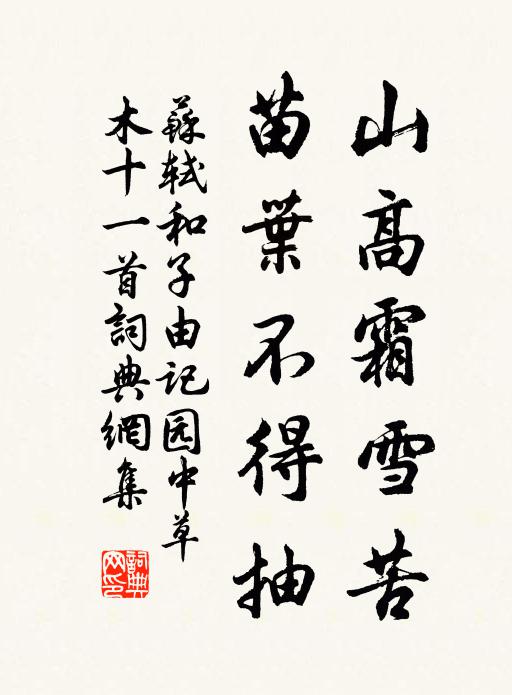 山高霜雪苦
苗葉不得抽
蘇軾和子由记园中草
木十一首詞典網集
詞典網印